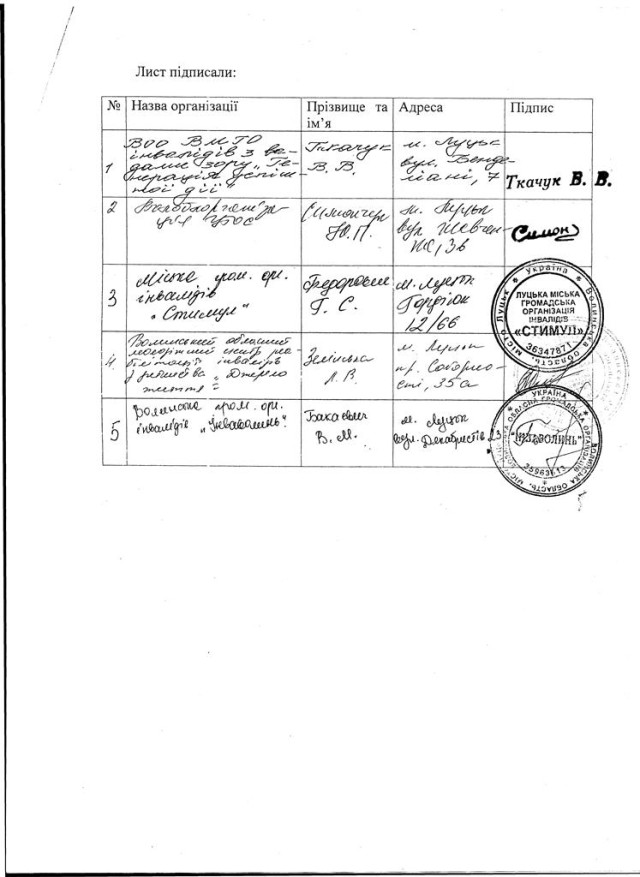 Лист підписали:
№ Назва організації Прізвище та ім’я Адреса Підпис
1
ВОО ВМГО
інвалідів з ва-
дами зору „Ге-
нерація успіш-
ної дії"
Ткачук
В. В.
м. Луцьк
вул.
7
Ткачук В. В.
2
УТОС
Ю.П.
м. Луцьк
вул. Шевчен-
ка, 3в
Симон
3
Міська гром. орг.
інвалідів
„Стимул"
Г. С.
м. Луцьк
Гордіюк
12/66
Україна * Волинська область * місто Луцьк
ЛУЦЬКА МІСЬКА
ГРОМАДСЬКА
ОРГАНІЗАЦІЯ
ІНВАЛІДІВ
«СТИМУЛ»
36347871
4.
Волинський обласний
центр реа-
білітації інвалідів
з дитинства „Джерело
життя"
Л. В.
м. Луцьк
пр. Соборно-
сті, 35а
5
Волинська гром. орг.
інвалідів „Інваволинь"
Бакаєвич
В. М.
м. Луцьк
вул. Декабристів 23
УКРАЇНА
"ІНВАВОЛИНЬ"
35963613